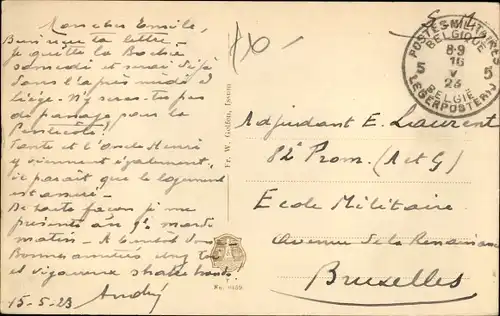 Mon cher Emile,
Bien reçu ta lettre.
Je quitte la Bochie
samedi et serai déjà
dans l'après midi à
Liège. N'y seras-tu pas
de passage pour la
Pentecôte?
Tante et l'oncle Henri
y viennent également,
il paraît que le logement
est assuré.
De toute façon je me
présente au 9e mardi
matin. À bientôt donc
Bonnes amitiés
et vigoureux shake hands.
15-5-23 André
Tr. W. Golfen, Essen
No.
POSTES MILITAIRES
BELGIQUE
8-9
16
V
23
5 5
BELGIË
LEGERPOSTERIJ
S.M.
Adjudant E. Laurent
82e Prom. (A et G)
Ecole Militaire
Avenue de la Renaissance
Bruxelles